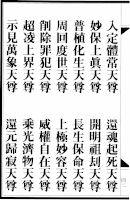 入定體常天尊　還魂起死天尊
妙保上眞天尊　開明祖刼天尊
普植化生天尊　長生保命天尊
周回度世天尊　上極妙容天尊
削除罪犯天尊　威權自在天尊
超凌上界天尊　乘光濟物天尊
示見萬象天尊　還元歸寂天尊